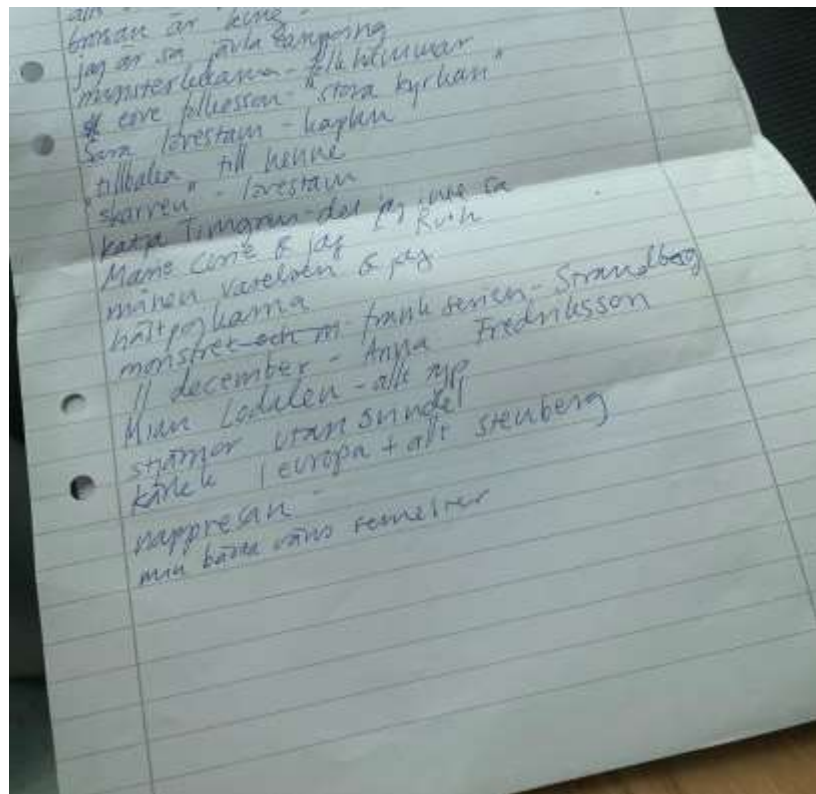 allt
är
jag är så jävla
mönsterledarna -
eove folkesson - "stora kyrkan"
Sara lövestam -
"tillbaka till henne
skarven" - lövestam
katja Timgren - det jag inte sa
Marie Curie & jag
månen varelsen & jag Ruth
hästpojkarna
monstret och m - frank serien - Strandberg
11 december - Anna Fredriksson
Mian Lodalen - allt typ
stjärnor utan svindel
kärlek i europa + allt stenberg
nappresan -
min bästa väns semester